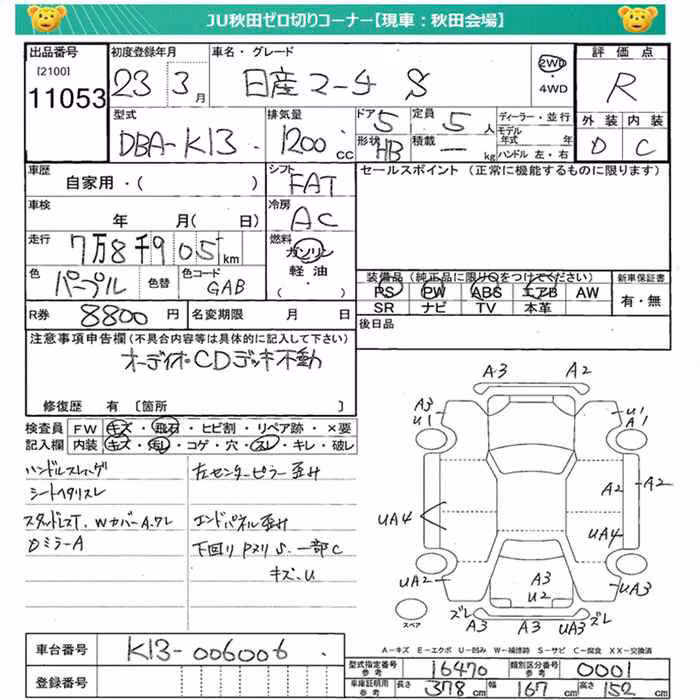 JU秋田ゼロ切りコーナー【現車：秋田会場】
出品番号
[2100]
11053
初度登録年月
23 3月
車名・グレード
日産マーチ S
2WD
・4WD
評価点
R
外装 内装
D C
型式
DBA-K13
排気量
1200 cc
ドア 5
形状 HB
定員 5 人
積載 ー kg
ディーラー・並行
モデル年式 年
ハンドル 左・右
車歴
自家用・( )
シフト
FAT
車検
年 月( 日)
冷房
AC
走行
7万8千905km
燃料
ガソリン
軽油
・( )
色
パープル
色替
色コード
GAB
R券
8800円
名変期限 月 日
セールスポイント (正常に機能するものに限ります)
装備品(純正品に限り○をつけてください)
PS PW ABS エアB AW
SR ナビ TV 本革
新車保証書
有・無
後日品
注意事項申告欄(不具合内容等は具体的に記入して下さい)
オーディオCDデッキ不動
修復歴 有 [箇所 ]
検査員記入欄
FW キズ・飛石・ヒビ割・リペア跡・×要
内装 キズ・汚レ・コゲ・穴・スレ・キレ・破レ
ハンドルスレ
シートヘタリスレ
スタッドレスT. WカバーA.ワレ
DミラーA
左センターピラー歪み
エンドパネル歪み
下回り Pヌリ S. 一部C
キズ.U
A3 A2
A3 U1
U1 A1
A2 A2
UA4
UA4
UA2
A3 U2
UA3
ズレ A3 A3 UA3 ズレ
スペア
A－キズ E－エクボ U－凹み W－補修跡 S－サビ C－腐食 XX－交換済
車台番号
K13-006006
登録番号
型式指定番号 参考 16470
類別区分番号 参考 0001
車庫証明用 参考 長さ 378cm 幅 167cm 高さ 152cm